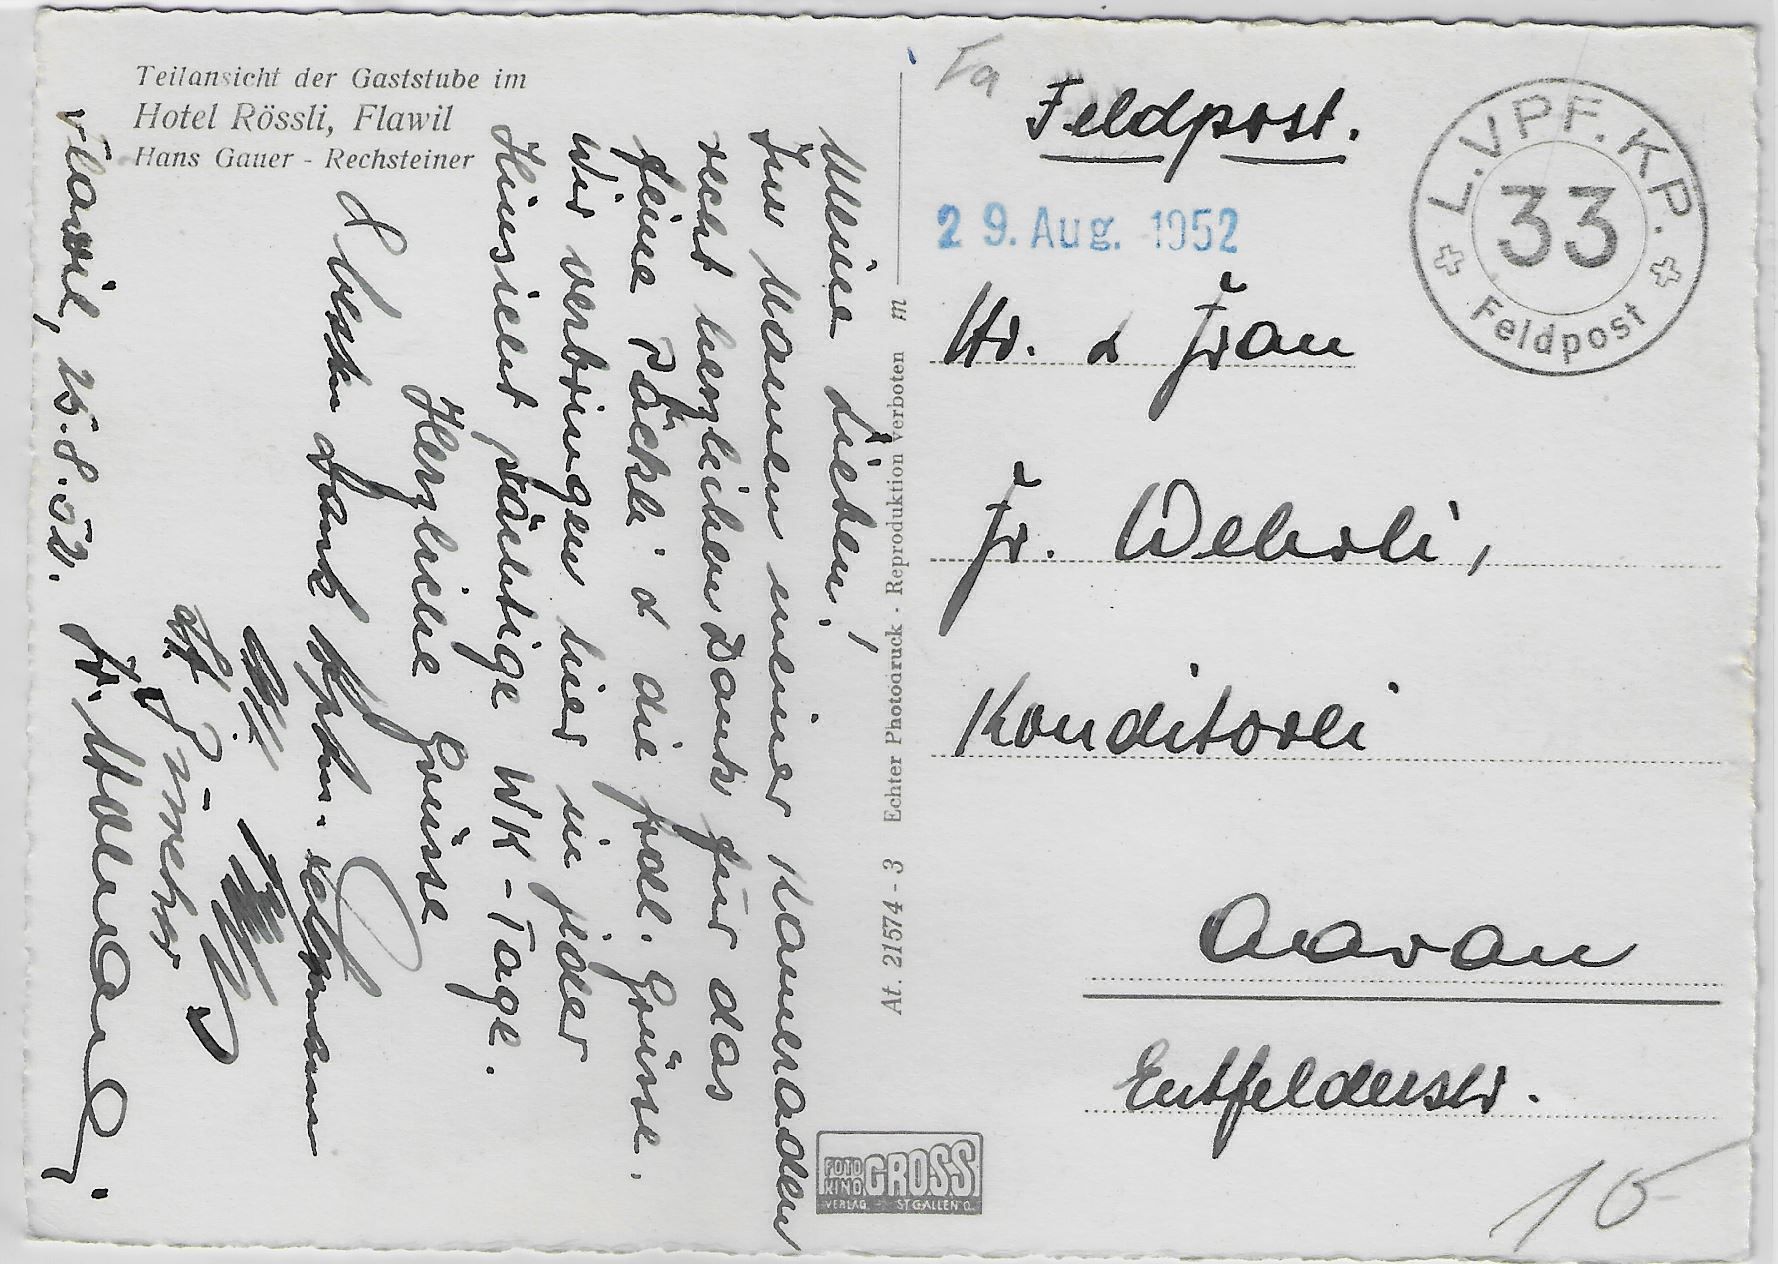 Teilansicht der Gaststube im
Hotel Rössli, Flawil
Hans Gauer - Rechsteiner
Flawil, 25.8.52.
Meine Lieben!
Im Namen meiner Kameraden
recht herzlichen Dank für das
feine Päckli & die frdl. Grüsse.
Wir verbringen hier in jeder
Hinsicht prächtige WK-Tage.
Herzliche Grüsse
besten Dank
At. 21574 - 3 Echter Photodruck - Reproduktion verboten m
FOTO KINO GROSS
VERLAG ST.GALLEN O.
Feldpost.
29. Aug. 1952
L. VPF. KP.
33
Feldpost
Hr. & Frau
Fr. Wehrli,
Konditorei
Aarau
Entfelderstr.
10